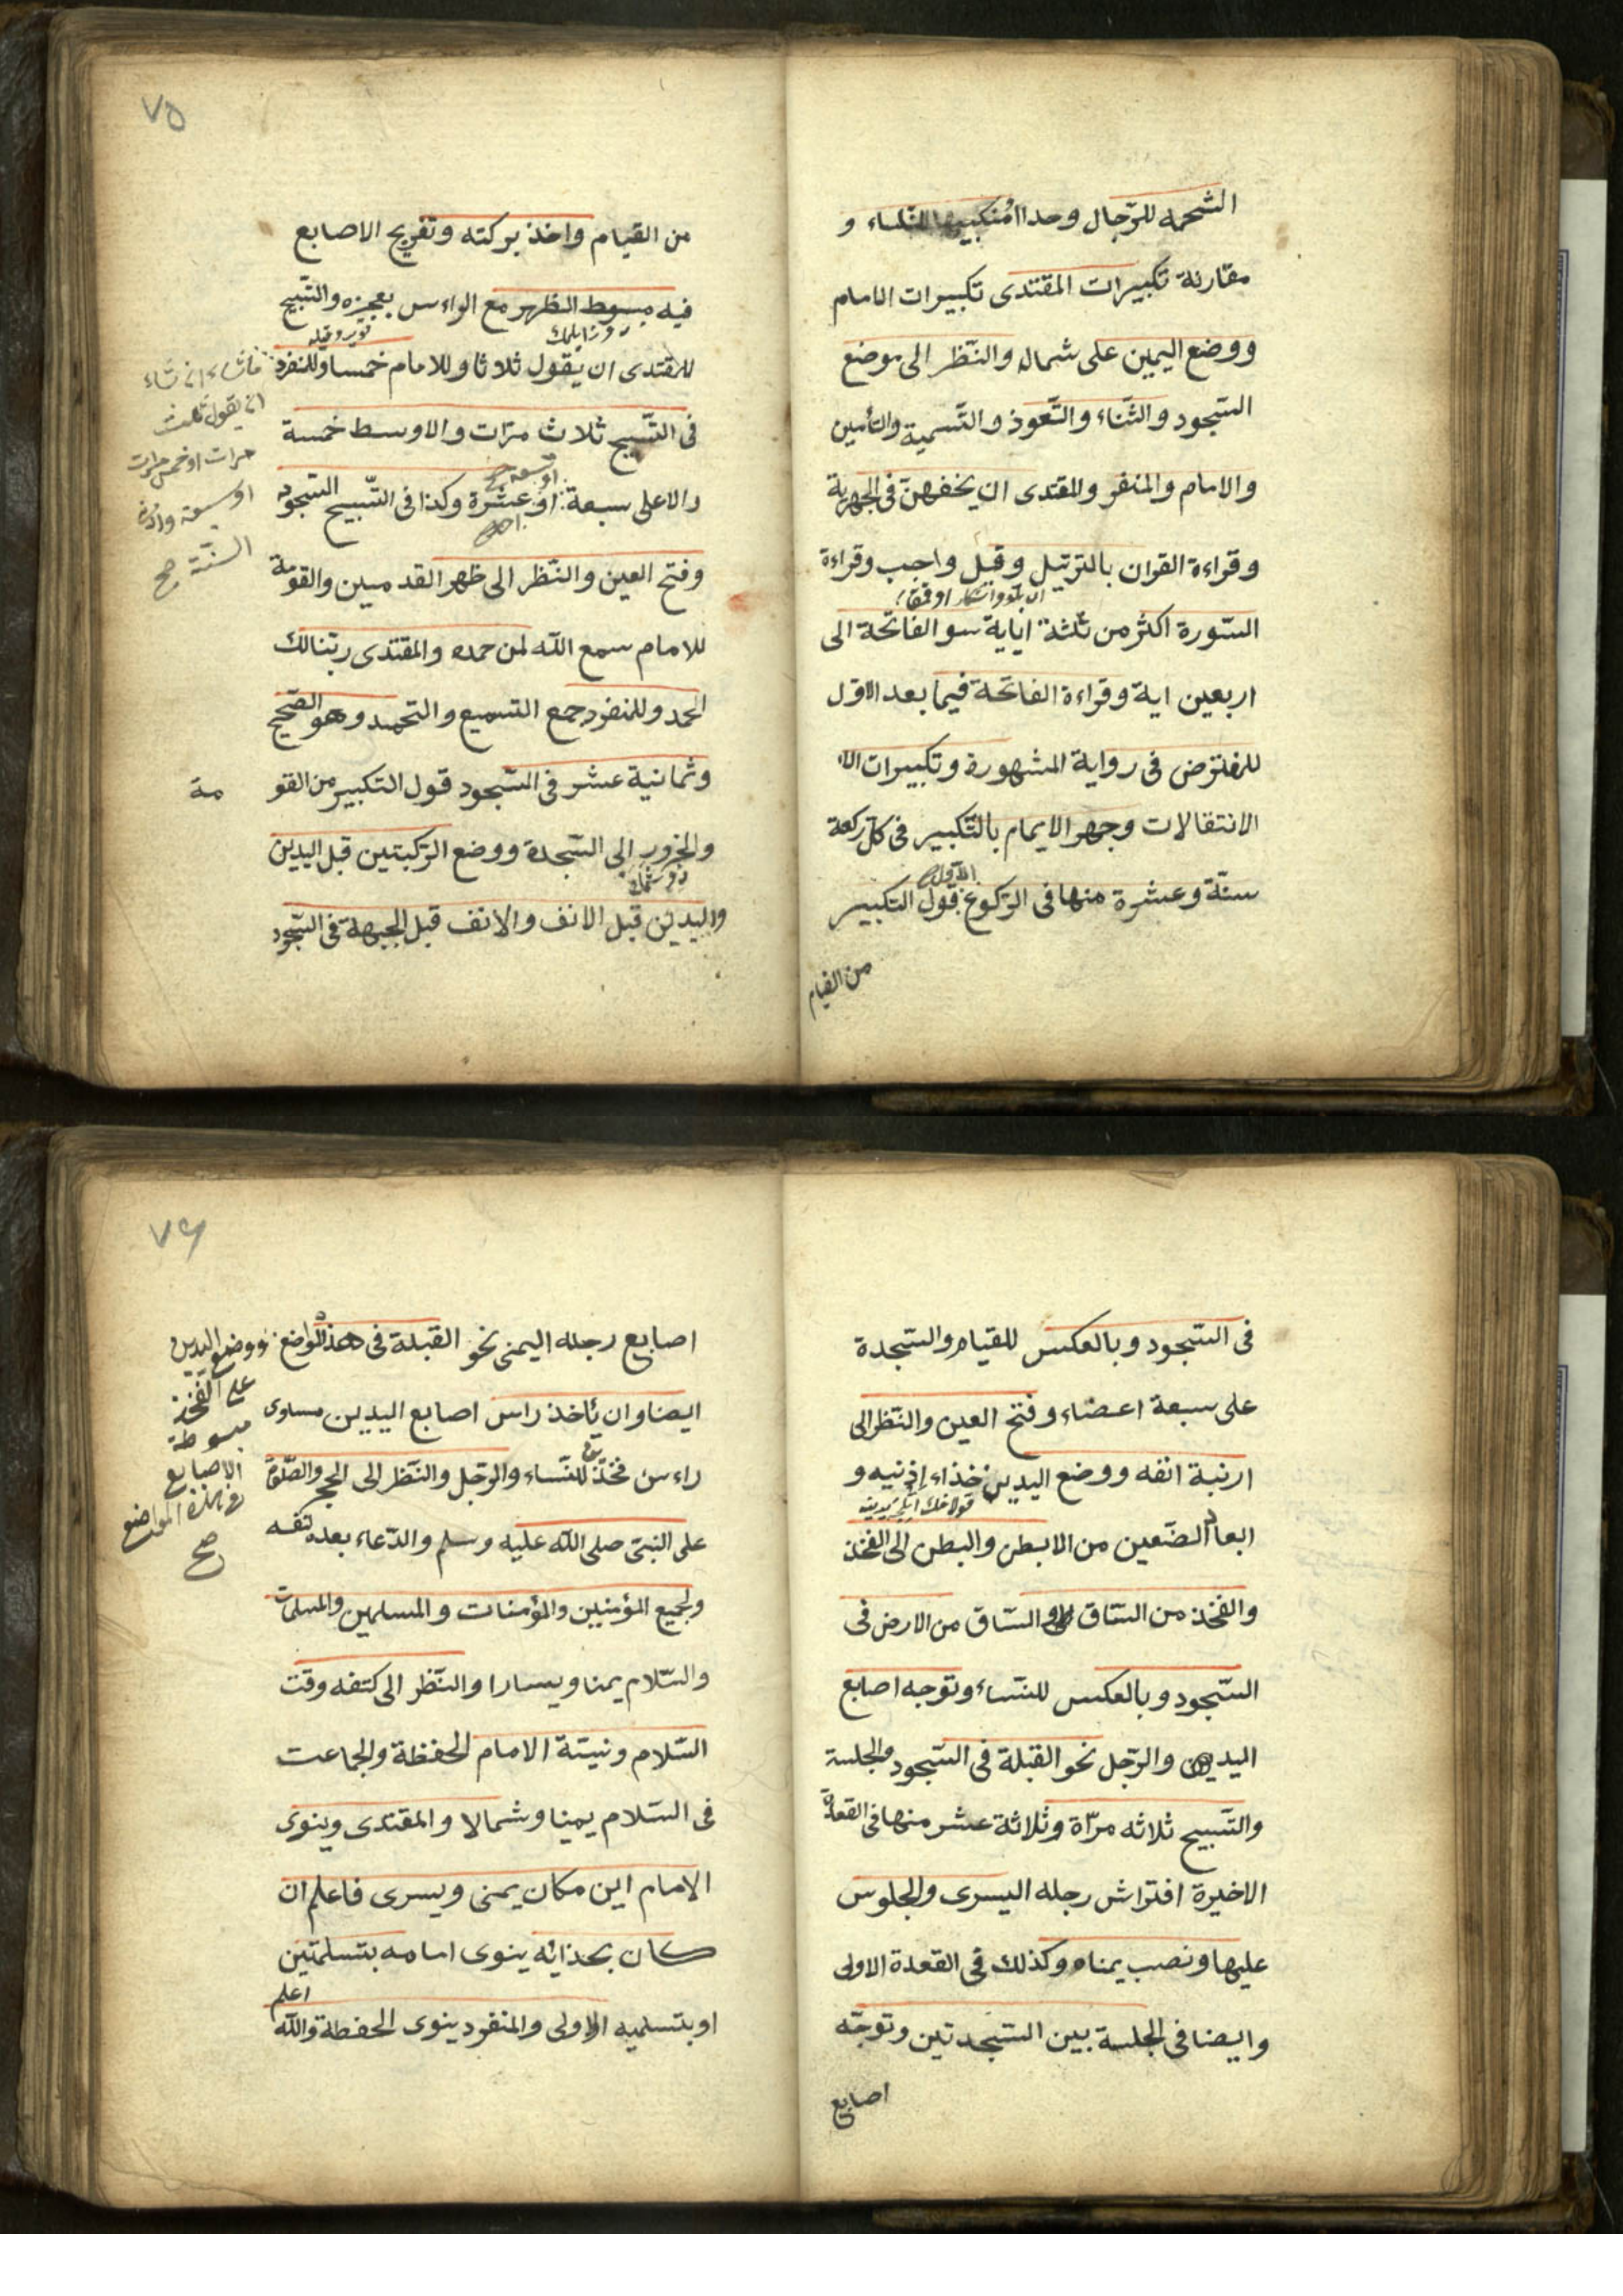 الشحمه للرجال وحدا منكبيها للنساء و
مقارنة تكبيرات المقتدى تكبيرات الامام
ووضع اليمين على شماله والنظر الى موضع
السجود والثناء والتعوذ والتسمية والتأمين
والامام والمنفر وللقتدى ان يخفهن فى الجهرية
وقراءة القران بالترتيل وقيل واجب وقراءة
السورة اكثر من ثلثة اياية سو الفاتحة الى
اربعين اية وقراءة الفاتحة فيما بعد الاول
للمفترض فى رواية المشهورة وتكبيرات الا
الانتقالات وجهر الايمام بالتكبير فى كل ركعة
الاول
ستة وعشرة منها فى الركوع قول التكبير
من القيام
٧٥
من القيام واخذ بركته وتفريج الاصابع
فيه بسوط الظهر مع الراءس بعجزه والتسبيح
للمقتدى ان يقول ثلاثا وللامام خمسا وللنفرد
ماشاء ان شاء
ان يقول ثلث
مرات او خمس مرات
او سبعة وادنى
السنة صح
فى التسبيح ثلاث مرات والاوسط خمسة
او تسعة صح
والاعلى سبعة او عشرة وكذا فى التسبيح السجود
وفتح العين والنظر الى ظهر القدمين والقومة
للامام سمع الله لمن حمده والمقتدى ربنالك
الحمد وللمنفرد جمع التسميع والتحميد وهو الصحيح
وثمانية عشر فى السجود قول التكبير من القو مة
والخرور الى السجدة ووضع الركبتين قبل اليدين
واليدين قبل الانف والانف قبل الجبهة فى السجود
فى السجود وبالعكس للقيام والسجدة
على سبعة اعضاء وفتح العين والنظر الى
ارنبة انفه ووضع اليدين خذاء اذنيه و
ابعاد الضعين من الابطن والبطن الى الفخذ
والفخذ من الساق والساق من الارض فى
السجود وبالعكس للنساء وتوجه اصابع
اليدين والرجل نحو القبلة فى السجود والجلسة
والتسبيح ثلاثه مرة وثلاثة عشر منها فى القعدة
الاخيرة افتراش رجله اليسرى والجلوس
عليها ونصب يمناه وكذلك فى القعدة الاولى
وايضا فى الجلسة بين السجدتين وتوجه
اصابع
٧٦
اصابع رجله اليمنى نحو القبلة فى هذه المواضع
ووضع اليدين
على الفخذ
مبسوطة
الاصابع
فى هذه المواضع
صح
ايضا وان يأخذ راس اصابع اليدين مساوى
راءس فخذين للنساء والرجل والنظر الى الحجر والصلوة
على النبى صلى الله عليه وسلم والدعاء بعده لنفسه
ولجميع المؤمنين والمؤمنات والمسلمين والمسلمات
والسلام يمنا ويسارا والنظر الى كتفه وقت
السلام ونية الامام الحفظة والجماعت
فى السلام يمينا وشمالا والمقتدى وينوى
الامام اين مكان يمنى ويسرى فاعلم ان
كان بحذائه ينوى امامه بتسلمتين
او بتسلميه الاولى والمنفرد ينوى الحفظة والله
اعلم